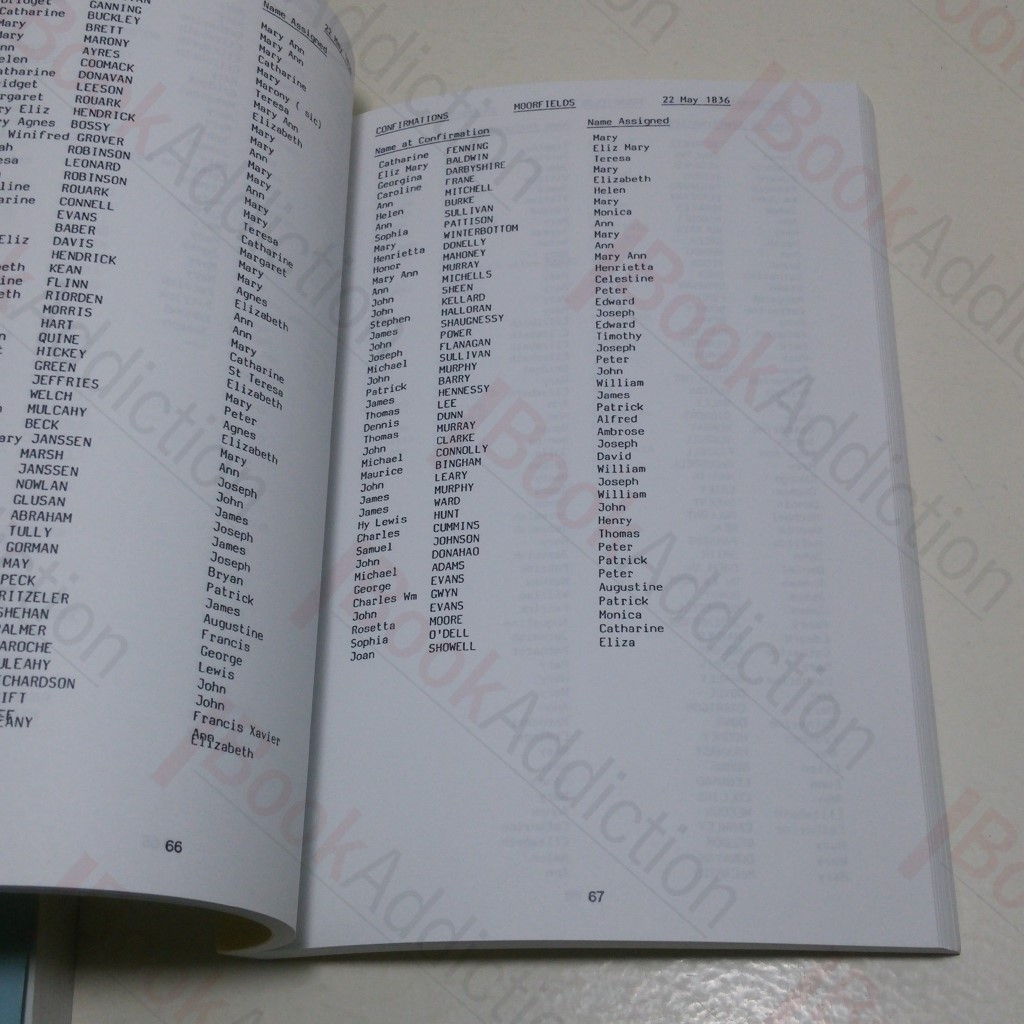 GANNING
Catharine BUCKLEY
Mary BRETT
MARONY
AYRES
COOMACK
DONAVAN
LEESON
ROUARK
HENDRICK
Agnes BOSSY
Winifred GROVER
ROBINSON
LEONARD
ROBINSON
ROUARK
CONNELL
EVANS
BABER
Eliz DAVIS
HENDRICK
KEAN
FLINN
RIORDEN
MORRIS
HART
QUINE
HICKEY
GREEN
JEFFRIES
WELCH
MULCAHY
BECK
JANSSEN
MARSH
JANSSEN
NOWLAN
GLUSAN
ABRAHAM
TULLY
GORMAN
MAY
PECK
22 May
Name Assigned
Mary Ann
Mary Ann
Catharine
Mary
Marony ( sic)
Teresa
Mary Ann
Elizabeth
Mary
Mary
Ann
Mary
Mary
Ann
Mary
Mary
Teresa
Catharine
Margaret
Mary
Mary
Agnes
Elizabeth
Ann
Ann
Mary
Catharine
St Teresa
Elizabeth
Mary
Peter
Agnes
Elizabeth
Mary
Ann
Joseph
John
James
Joseph
James
Joseph
Bryan
Patrick
James
Augustine
Francis
George
Lewis
John
John
Francis Xavier
Ann
Elizabeth
66
CONFIRMATIONS MOORFIELDS 22 May 1836
Name at Confirmation Name Assigned
Catharine FENNING Mary
Eliz Mary BALDWIN Eliz Mary
Georgina DARBYSHIRE Teresa
Caroline FRANE Mary
Ann MITCHELL Elizabeth
Helen BURKE Helen
Ann SULLIVAN Mary
Sophia PATTISON Monica
Mary WINTERBOTTOM Ann
Henrietta DONELLY Mary
Honor MAHONEY Ann
Mary Ann MURRAY Mary Ann
Ann MICHELLS Henrietta
John SHEEN Celestine
John KELLARD Peter
Stephen HALLORAN Edward
James SHAUGNESSY Joseph
John POWER Edward
Joseph FLANAGAN Timothy
Michael SULLIVAN Joseph
John MURPHY Peter
Patrick BARRY John
James HENNESSY William
Thomas LEE James
Dennis DUNN Patrick
Thomas MURRAY Alfred
John CLARKE Ambrose
Michael CONNOLLY Joseph
Maurice BINGHAM David
John LEARY William
James MURPHY Joseph
James WARD William
Hy Lewis HUNT John
Charles CUMMINS Henry
Samuel JOHNSON Thomas
John DONAHAO Peter
Michael ADAMS Patrick
George EVANS Peter
Charles Wm GWYN Augustine
John EVANS Patrick
Rosetta MOORE Monica
Sophia O'DELL Catharine
Joan SHOWELL Eliza
67
BookAddiction